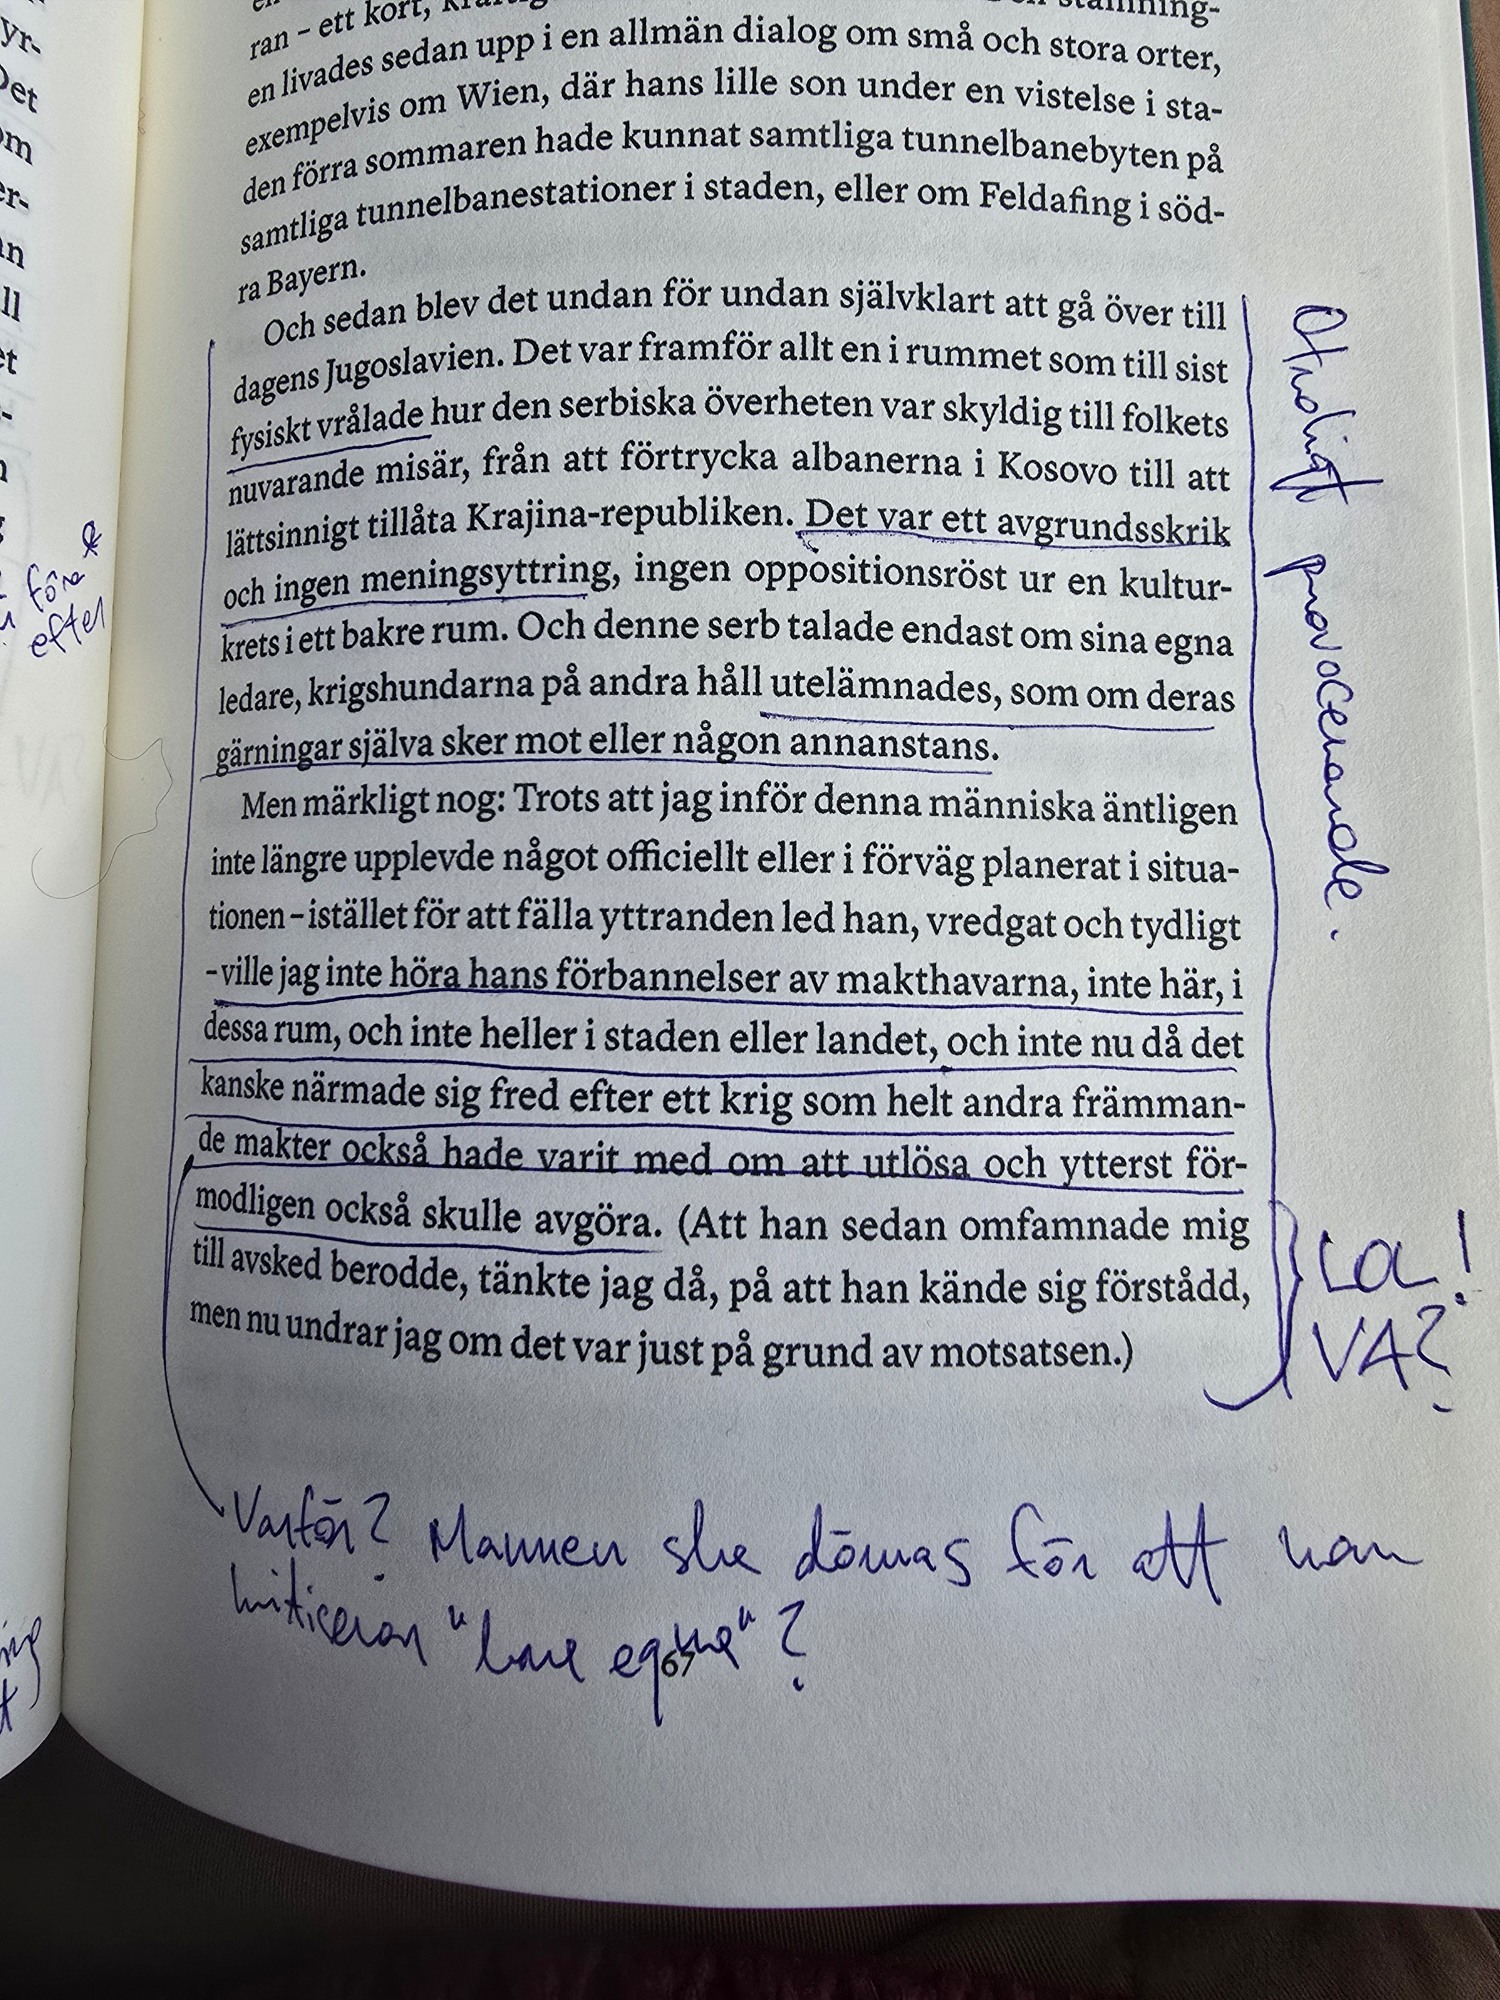 ran – ett kort,
en livades sedan upp i en allmän dialog om små och stora orter,
exempelvis om Wien, där hans lille son under en vistelse i sta-
den förra sommaren hade kunnat samtliga tunnelbanebyten på
samtliga tunnelbanestationer i staden, eller om Feldafing i söd-
ra Bayern.
Och sedan blev det undan för undan självklart att gå över till
dagens Jugoslavien. Det var framför allt en i rummet som till sist
fysiskt vrålade hur den serbiska överheten var skyldig till folkets
nuvarande misär, från att förtrycka albanerna i Kosovo till att
lättsinnigt tillåta Krajina-republiken. Det var ett avgrundsskrik
och ingen meningsyttring, ingen oppositionsröst ur en kultur-
krets i ett bakre rum. Och denne serb talade endast om sina egna
ledare, krigshundarna på andra håll utelämnades, som om deras
gärningar själva sker mot eller någon annanstans.
Men märkligt nog: Trots att jag inför denna människa äntligen
inte längre upplevde något officiellt eller i förväg planerat i situa-
tionen – istället för att fälla yttranden led han, vredgat och tydligt
– ville jag inte höra hans förbannelser av makthavarna, inte här, i
dessa rum, och inte heller i staden eller landet, och inte nu då det
kanske närmade sig fred efter ett krig som helt andra främman-
de makter också hade varit med om att utlösa och ytterst för-
modligen också skulle avgöra. (Att han sedan omfamnade mig
till avsked berodde, tänkte jag då, på att han kände sig förstådd,
men nu undrar jag om det var just på grund av motsatsen.)
Otroligt provocerande.
LOL!
VA?
Varför? Mannen ska dömas för att han
kritiserar "bara egna"?
67
före
efter